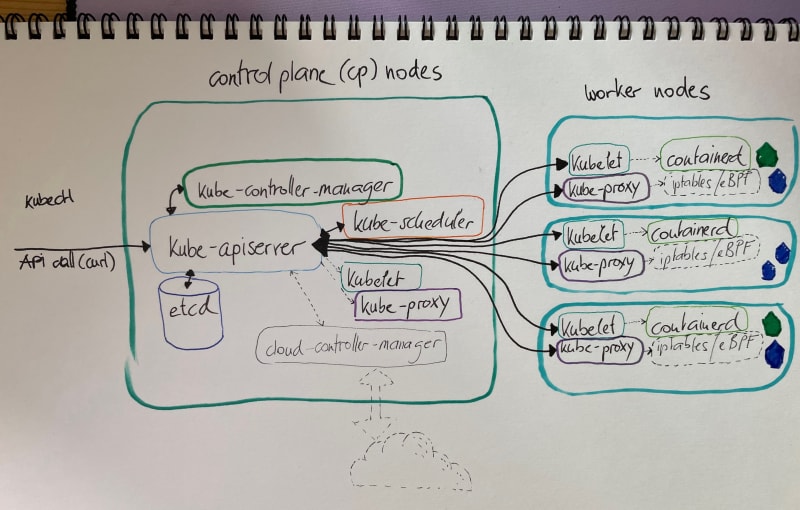 control plane (cp) nodes
worker nodes
kubectl
API call (curl)
kube-controller-manager
kube-scheduler
kube-apiserver
etcd
kubelet
kube-proxy
cloud-controller-manager
kubelet
containerd
kube-proxy
iptables/eBPF
kubelet
containerd
kube-proxy
iptables/eBPF
kubelet
containerd
kube-proxy
iptables/eBPF